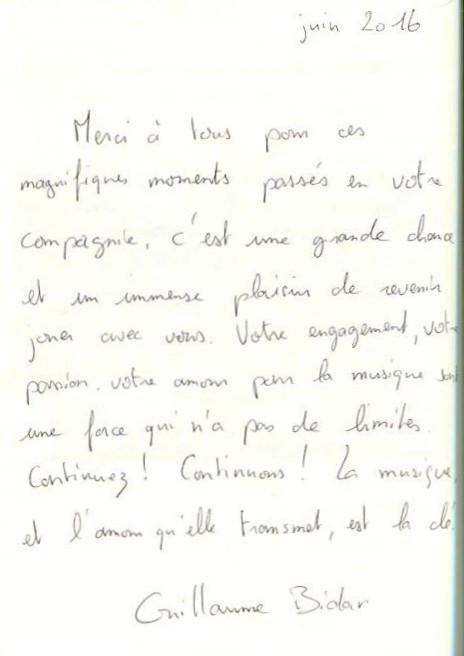 juin 2016
Merci à tous pour ces
magnifiques moments passés en votre
compagnie, c'est une grande chance
et un immense plaisir de revenir
jouer avec vous. Votre engagement, votre
passion, votre amour pour la musique sont
une force qui n'a pas de limites.
Continuez ! Continuons ! La musique,
et l'amour qu'elle transmet, est la clé.
Guillaume Bidar